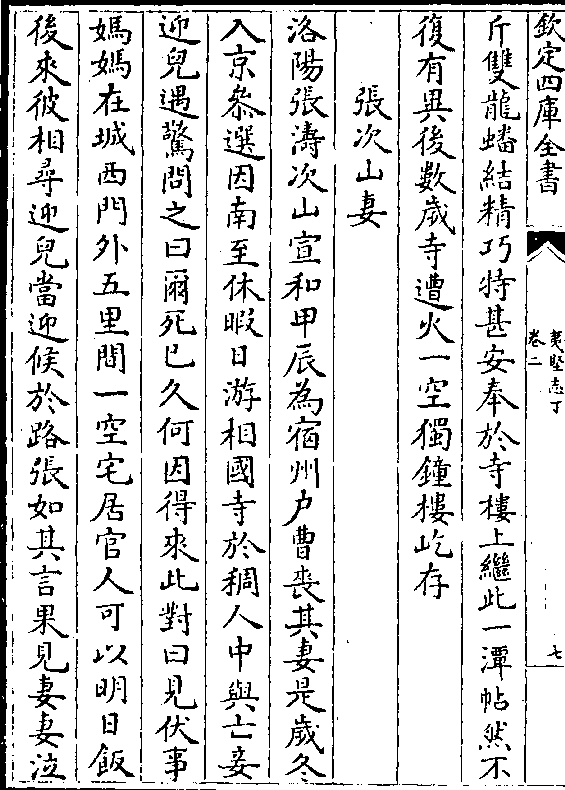 欽定四庫全書
夷堅志丁
卷二
七
斤雙龍蟠結精巧特甚安奉於寺樓上繼此一潭帖然不
復有異後數歲寺遭火一空獨鐘樓屹存
張次山妻
洛陽張濤次山宣和甲辰為宿州户曹喪其妻是歲冬
入京叅選因南至休暇日游相國寺於稠人中與亡妾
迎兒遇驚問之曰爾死已久何因得來此對曰見伏事
媽媽在城西門外五里間一空宅居官人可以明日飯
後來彼相尋迎兒當迎候於路張如其言果見妻妻泣